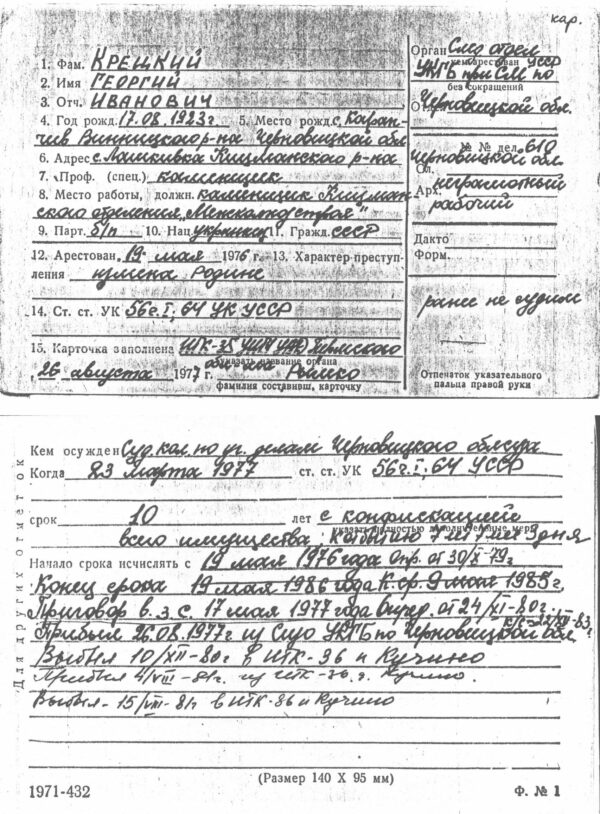 кар.
1. Фам. КРЕЦКИЙ
2. Имя ГЕОРГИЙ
3. Отч. ИВАНОВИЧ
4. Год рожд. 17.08.1923г. 5. Место рожд. с. Каран-
чев Винницкого р-на Черновицкой обл
6. Адрес с. Лашкивка Кицманского р-на
7. Проф. (спец.) каменщик
8. Место работы, должн. каменщик Кицман-
ского отделения „Межколхозстроя"
9. Парт. б/п 10. Нац. украинец 11. Гражд. СССР
12. Арестован. 19 мая 1976 г. 13. Характер преступ-
ления измена Родине
14. Ст. ст. УК 56 ч. I, 64 УК УССР
15. Карточка заполнена
указать название органа
26 августа 1977 г.
фамилия составивш. карточку
Орган След отдел
кем арестован УССР
УКГБ при СМ по
без сокращений
Черновицкой обл.
№ № дел 610
Черновицкой обл.
Арх. неграмотный
рабочий
Дакто
Форм.
ранее не судим
Отпечаток указательного
пальца правой руки
Для других отметок
Кем осужден Суд. кол. по уг. делам Черновицкого облсуда
Когда 23 марта 1977 ст. ст. УК 56 ч. I, 64 УССР
срок 10 лет с конфискацией
указать полностью дополнительные меры
всего имущества
Начало срока исчислять с 19 мая 1976 года Опр. от 30/X-79г.
Конец срока 19 мая 1986 года К.ср. 9 мая 1985г.
Приговор в.з.с. 17 мая 1977 года Опред. от 24/XI-80г.
Прибыл 26.08.1977г из СИЗО УКГБ по Черновицкой обл
Выбыл 10/XII-80г в ИТК-36 п Кучино
Прибыл 4/VIII-81г. из ИТК-36 п. Кучино.
Выбыл - 15/VIII-81г в ИТК-36 п Кучино
(Размер 140 X 95 мм)
1971-432 Ф. № 1